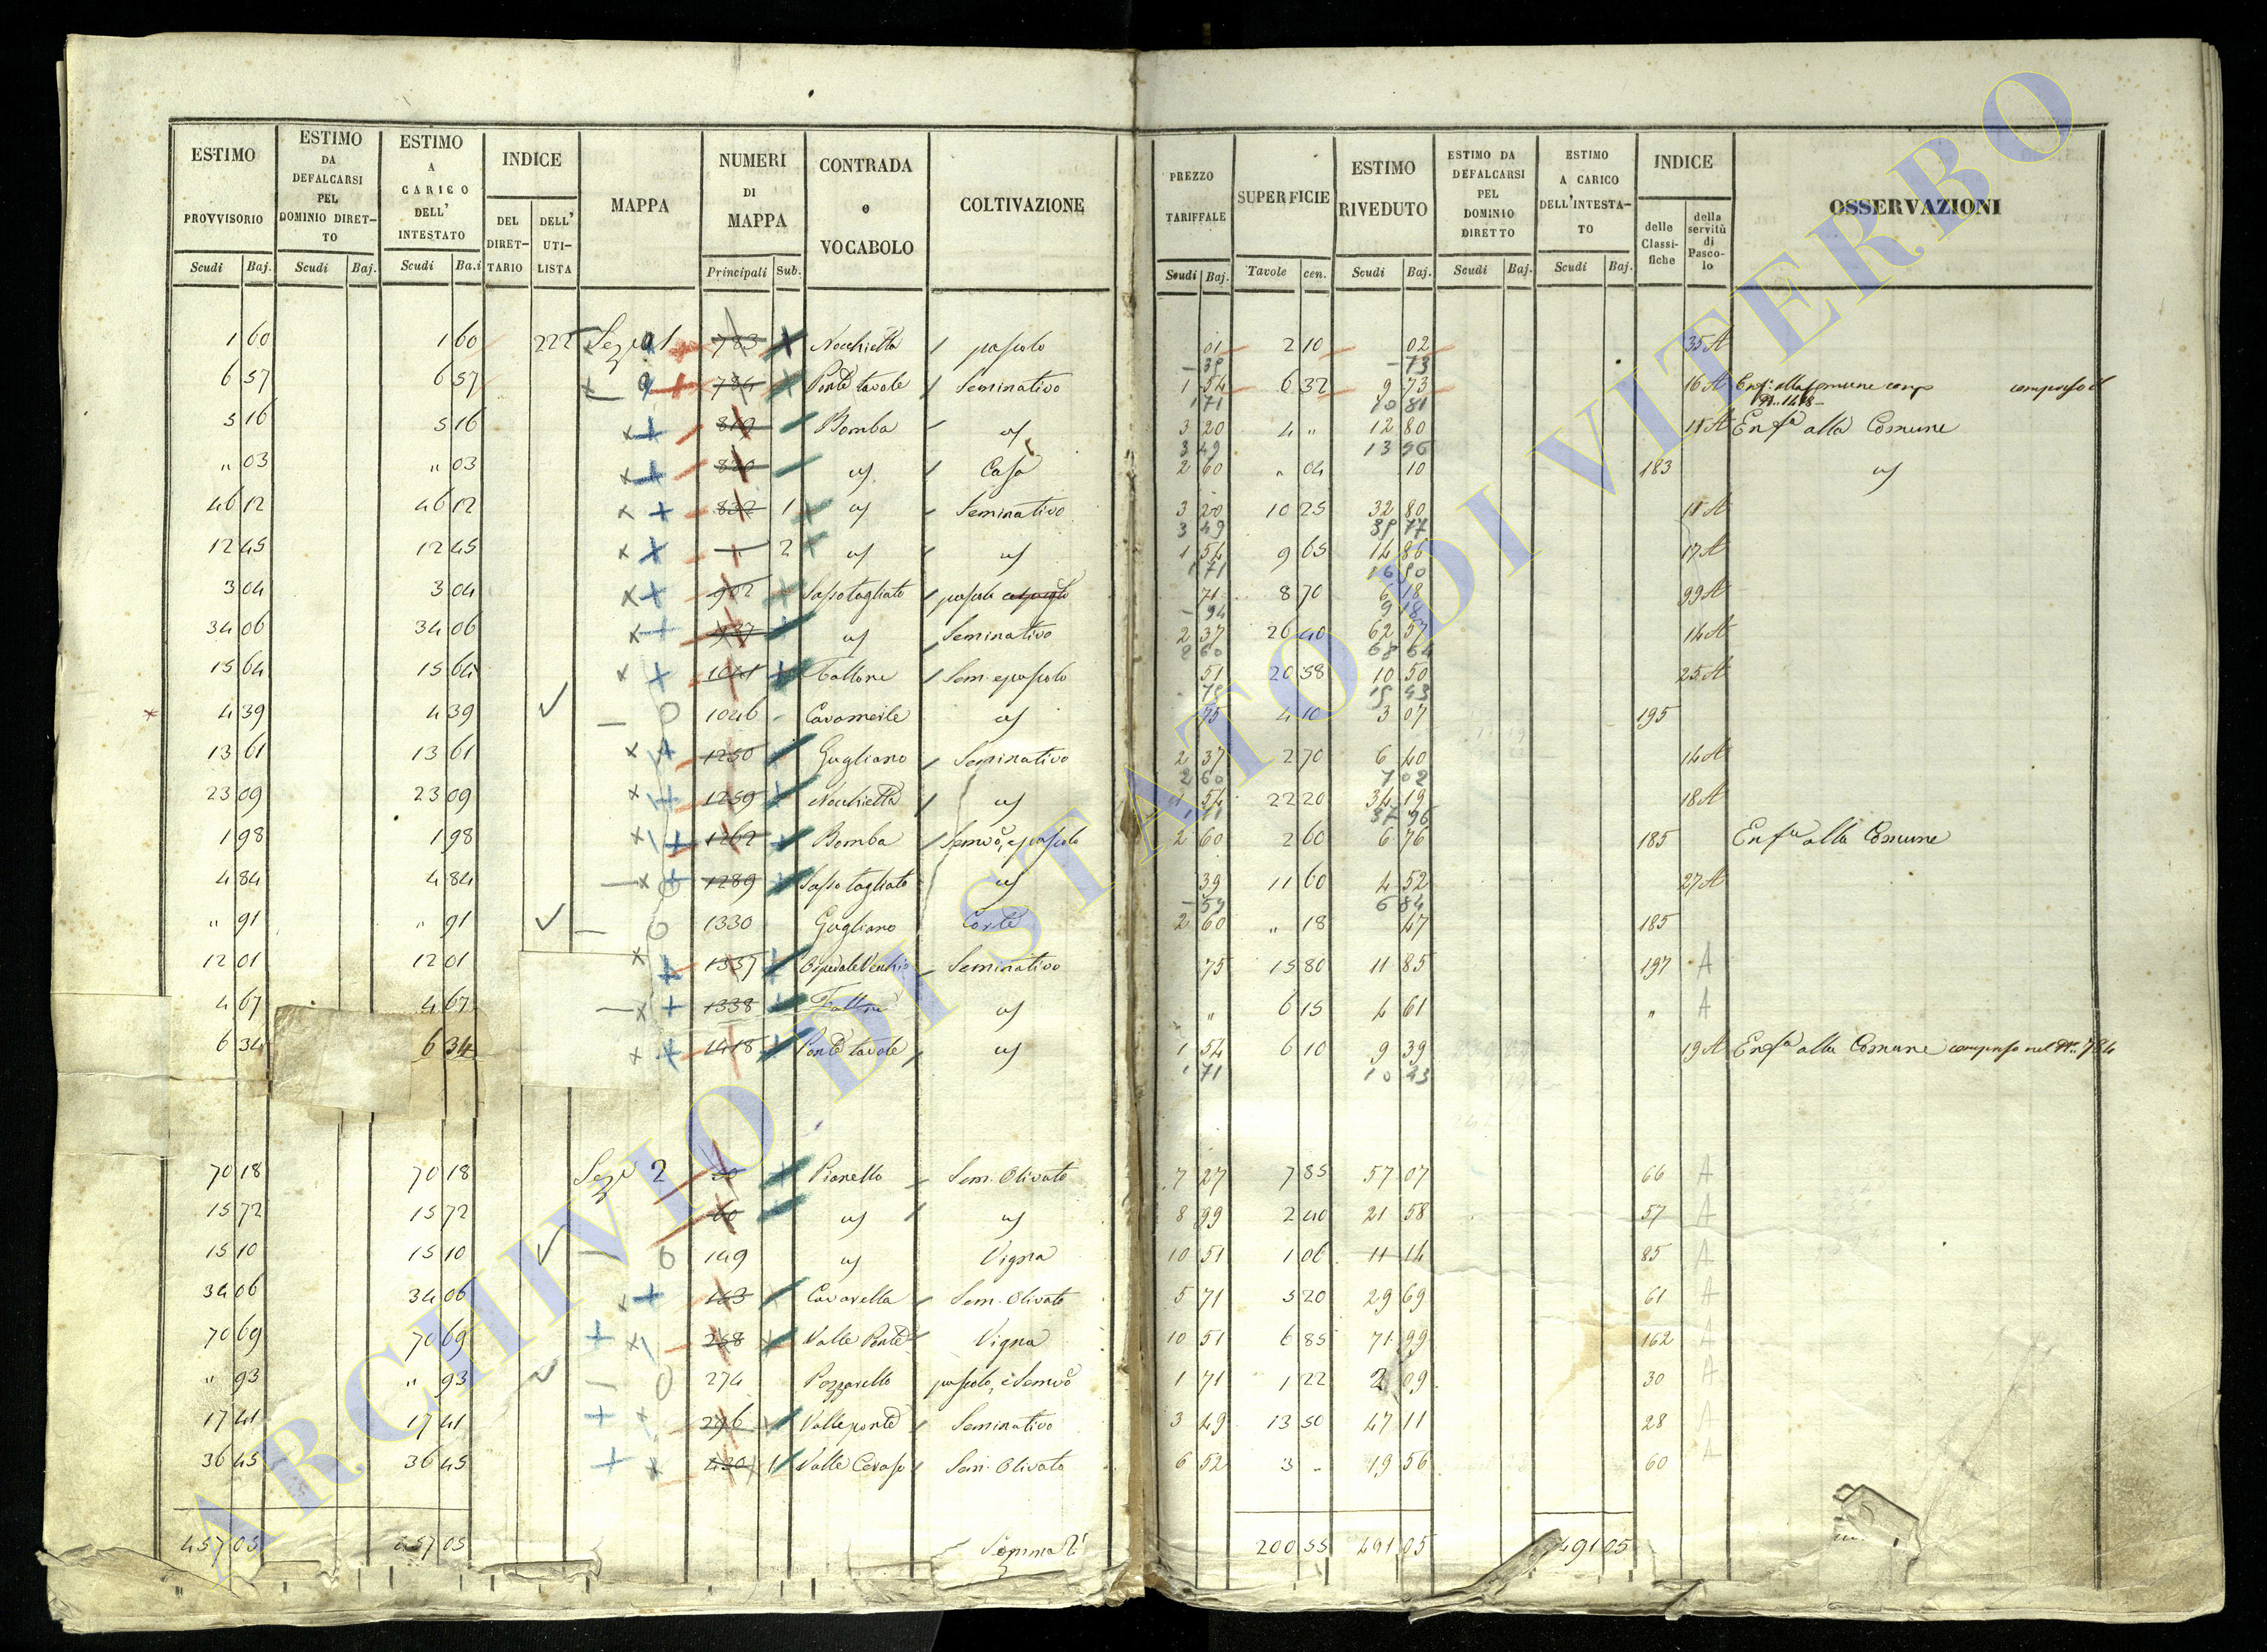 ESTIMO PROVVISORIO
ESTIMO DA DEFALCARSI PEL DOMINIO DIRET-TO
ESTIMO A CARICO DELL' INTESTATO
INDICE
DEL DIRET-TARIO
DELL' UTI-LISTA
MAPPA
NUMERI DI MAPPA
CONTRADA o VOCABOLO
COLTIVAZIONE
PREZZO TARIFFALE
SUPERFICIE
ESTIMO RIVEDUTO
ESTIMO DA DEFALCARSI PEL DOMINIO DIRETTO
ESTIMO A CARICO DELL'INTESTA-TO
INDICE
delle Classi-fiche
della servitù di Pasco-lo
OSSERVAZIONI
Scudi Baj. Scudi Baj. Scudi Ba.i Principali Sub. Scudi Baj. Tavole cen. Scudi Baj. Scudi Baj. Scudi Baj.
1 60 1 60 222 Sez. 1 783 Nocchietta pascolo 01 2 10 02 35 A
- 39 - 73
6 57 6 57 784 Ponte tavole Seminativo 1 54 6 32 9 73 16 A Enf: alla Comune comp compreso il
1 71 10 81 N. 1418
5 16 5 16 819 Bomba 3 20 4 " 12 80 11 A Enfa alla Comune
3 49 13 96
" 03 " 03 820 Casa 2 60 " 04 10 183
46 12 46 12 832 1 Seminativo 3 20 10 25 32 80 11 A
3 49
12 45 12 45 2 1 54 9 65 14 86 17 A
1 71
3 04 3 04 902 Sassotagliato pascolo 71 8 70 6 18 99 A
- 94 9 18
34 06 34 06 Seminativo 2 37 26 40 62 57 14 A
2 60 68 64
15 64 15 64 1041 Fattore Sem. e pascolo 51 20 58 10 50 25 A
4 39 4 39 1046 75 4 10 3 07 195
13 61 13 61 1250 Gugliano Seminativo 2 37 2 70 6 40 14 A
2 60 7 02
23 09 23 09 1259 Nocchietta 1 54 22 20 34 19 18 A
37 96
1 98 1 98 1262 Bomba Semvo, e pascolo 2 60 2 60 6 76 185 Enfa alla Comune
4 84 4 84 1289 Sassotagliato 39 11 60 4 52 27 A
- 59 6 84
" 91 " 91 1330 Gugliano Corte 2 60 " 18 47 185
12 01 12 01 1337 Ospedale Vecchio Seminativo 75 15 80 11 85 197 A
4 67 4 67 1338 Fattore " 6 15 4 61 " A
6 34 6 34 1418 Ponte tavole 1 54 6 10 9 39 19 A Enfa alla Comune compreso nel N. 784
1 71 10 43
70 18 70 18 Sez. 2 50 Pianetto Sem. Olivato 7 27 7 85 57 07 66 A
15 72 15 72 60 8 99 2 40 21 58 57 A
15 10 15 10 149 Vigna 10 51 1 06 11 14 85 A
34 06 34 06 163 Cavarella Sem. Olivato 5 71 5 20 29 69 61 A
70 69 70 69 258 Valle Ponte Vigna 10 51 6 85 71 99 162 A
" 93 " 93 274 Pozzarello pascolo, e Semvo 1 71 1 22 2 09 30 A
17 41 17 41 296 Valle ponte Seminativo 3 49 13 50 47 11 28 A
36 45 36 45 430 1 Valle Ceraso Sem. Olivato 6 52 3 - 19 56 60 A
457 05 457 05 Somma 200 55 491 05 491 05
ARCHIVIO DI STATO DI VITERBO